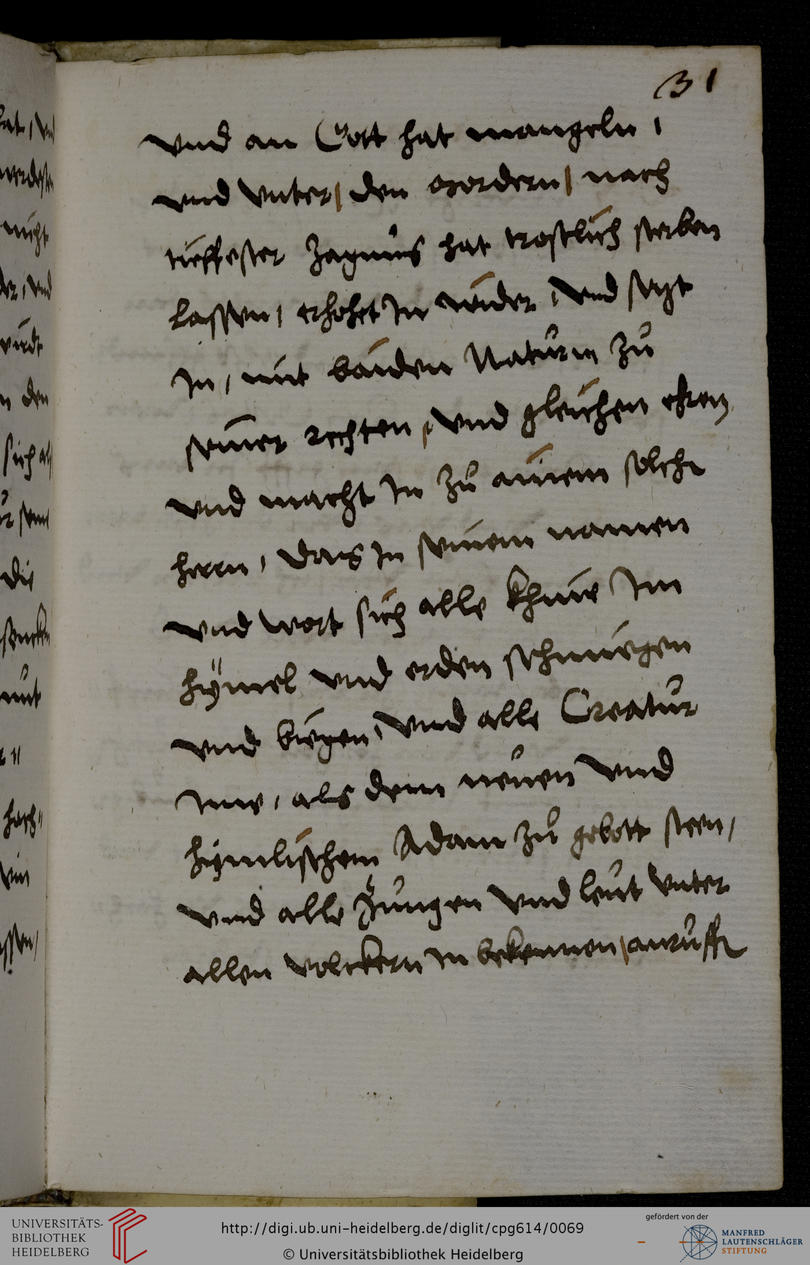 31
vnd an Gott hat mangeln /
vnd vnter / den mordern / nach
tieffester Zagnus hat trostlich sterben
lassen / erhohet In wider / vnd setzt
In / mit baiden Naturn zu
seiner rechten / vnd gleichen ehren
vnd macht In zu ainem solche
herrn / das In seinem namen
vnd wort sich alle khnie Im
hÿmel vnd erden schmiegen
vnd biegen / vnd alle Creatur
Ime / als dem neuen vnd
hÿmlischem Adam zu gebott steen /
vnd alle Zungen vnd leut vnter
allen volckern In bekennen / anruffe
UNIVERSITÄTS-
BIBLIOTHEK
HEIDELBERG
http://digi.ub.uni-heidelberg.de/diglit/cpg614/0069
© Universitätsbibliothek Heidelberg
gefördert von der
MANFRED
LAUTENSCHLÄGER
STIFTUNG